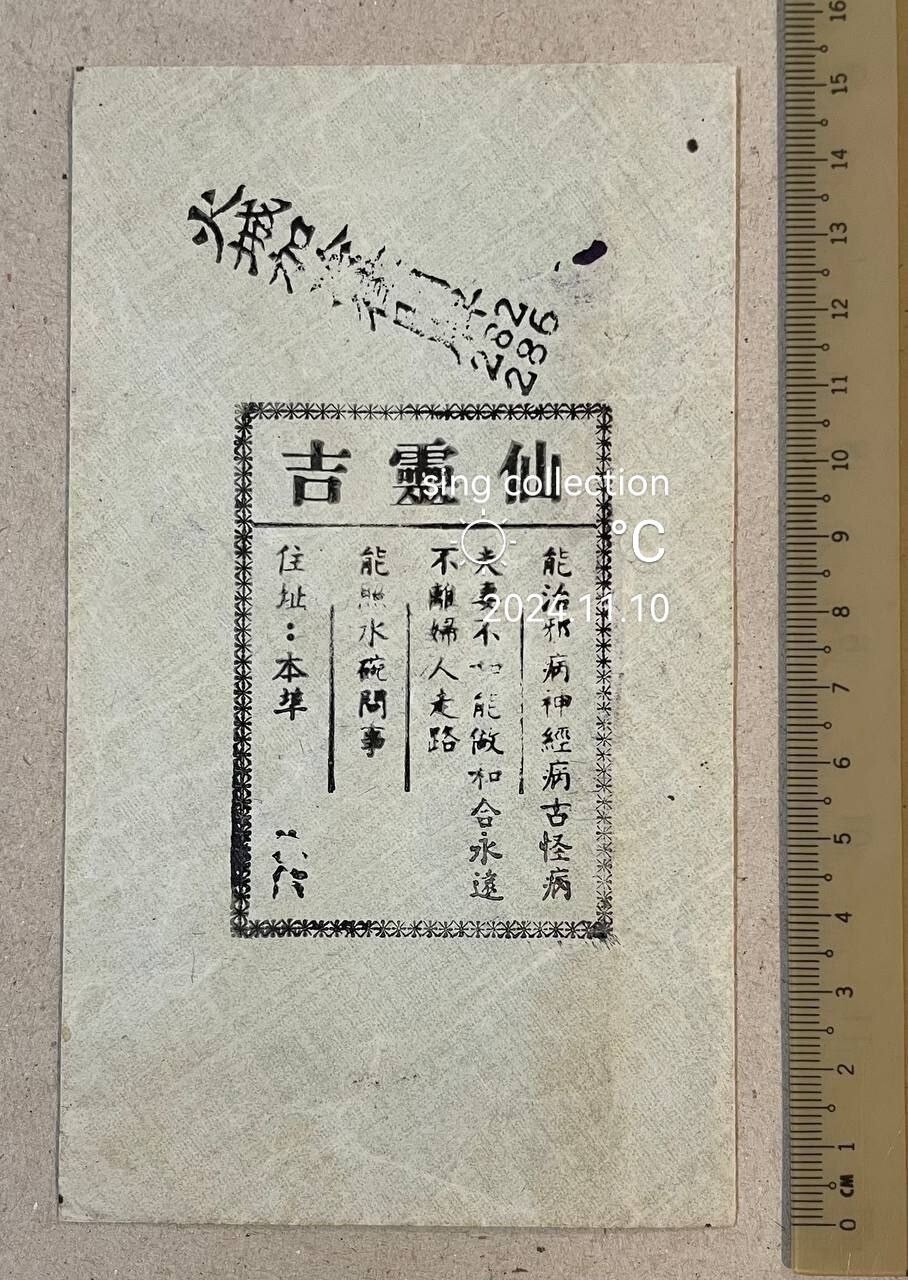 火城加冷
282
286
仙靈吉
能治邪病神經病古怪病
夫妻不和能做和合永遠
不離婦人走路
能照水碗問事
住址：本埠
sing collection
°C
2024.11.10
0 CM 1 2 3 4 5 6 7 8 9 10 11 12 13 14 15 16